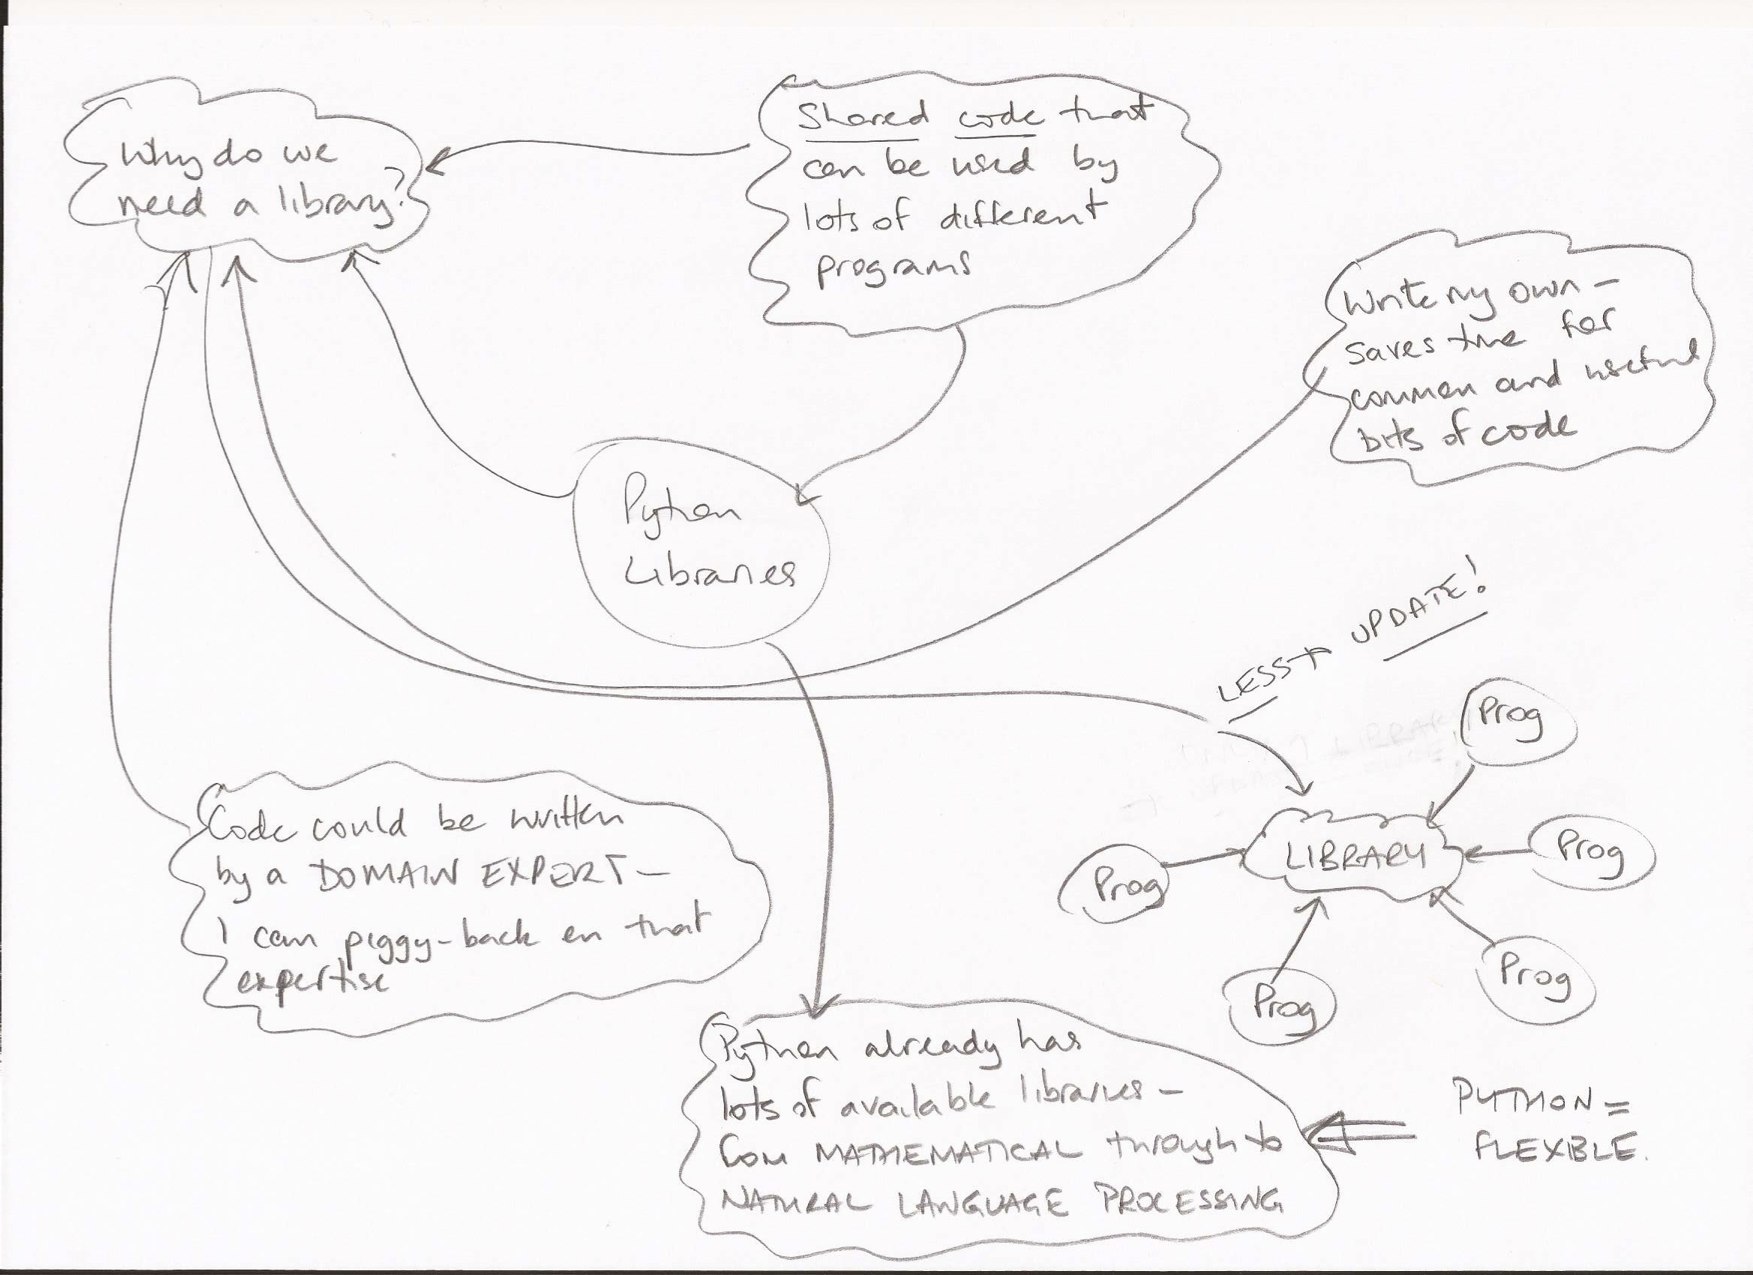 Why do we
need a library?
Shared code that
can be used by
lots of different
programs
Write my own –
saves time for
common and useful
bits of code
Python
Libraries
LESS to UPDATE!
Prog
Prog
LIBRARY
Prog
Prog
Prog
Code could be written
by a DOMAIN EXPERT –
I can piggy-back on that
expertise
Python already has
lots of available libraries –
from MATHEMATICAL through to
NATURAL LANGUAGE PROCESSING
PYTHON =
FLEXIBLE.